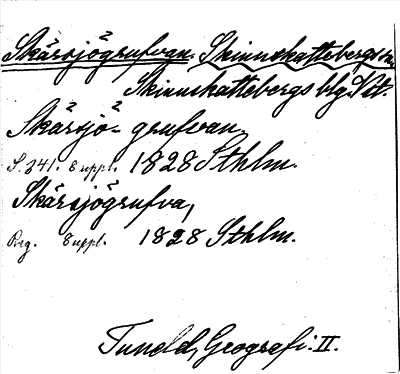 Skärsjögrufvan. Skinnskattebergs sn.
Skinnskattebergs blg. Vst.
Skärsjö- grufvan.
S. 241. 8 uppl. 1828 Sthlm.
Skärsjögrufva,
Reg. 8 uppl. 1828 Sthlm.
Tuneld, Geografi. II.